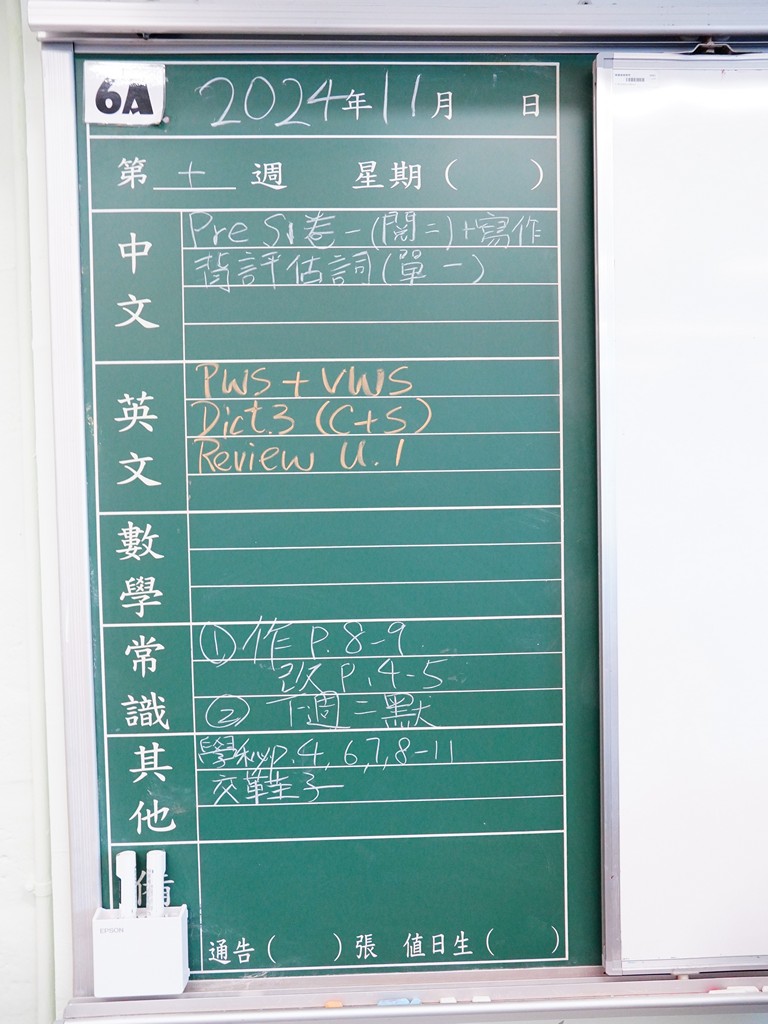 6A 2024年11月 日
第 十 週 星期( )
中文
Pre S1卷一(閱二)+寫作
背評估詞(單一)
英文
PWS + VWS
Dict.3 (C+S)
Review U.1
數學
常識
① 作 P.8-9
改 P.4-5
② 下週二默
其他
學私p.4,6,7,8-11
交單子
備
EPSON
通告( )張 值日生( )